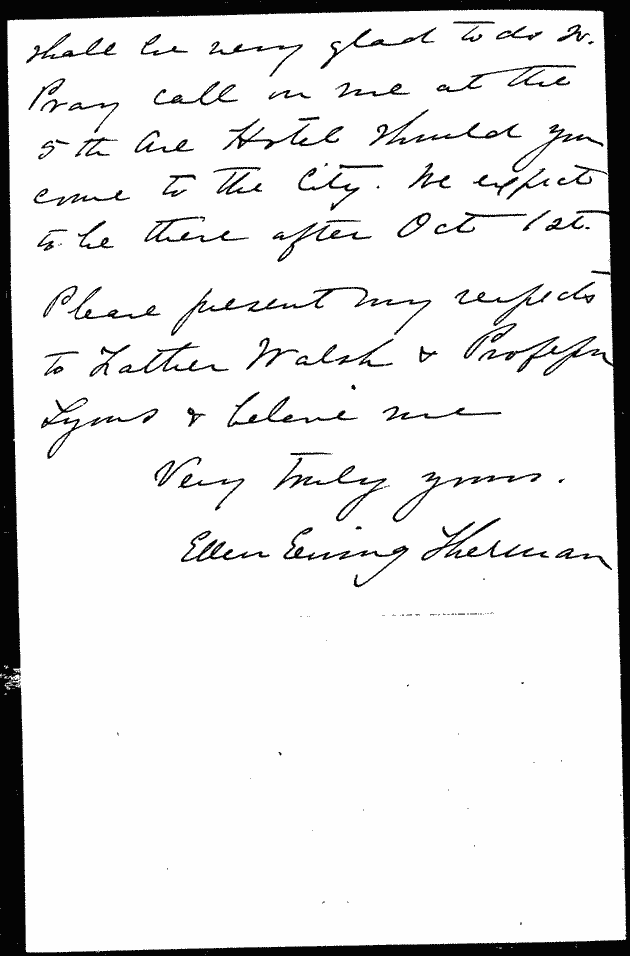 shall be very glad to do so.
Pray call on me at the
5th Ave Hotel should you
come to the City. We expect
to be there after Oct 1st.
Please present my respects
to Father Walsh & Professor
Lyons & believe me
Very truly yours.
Ellen Ewing Sherman